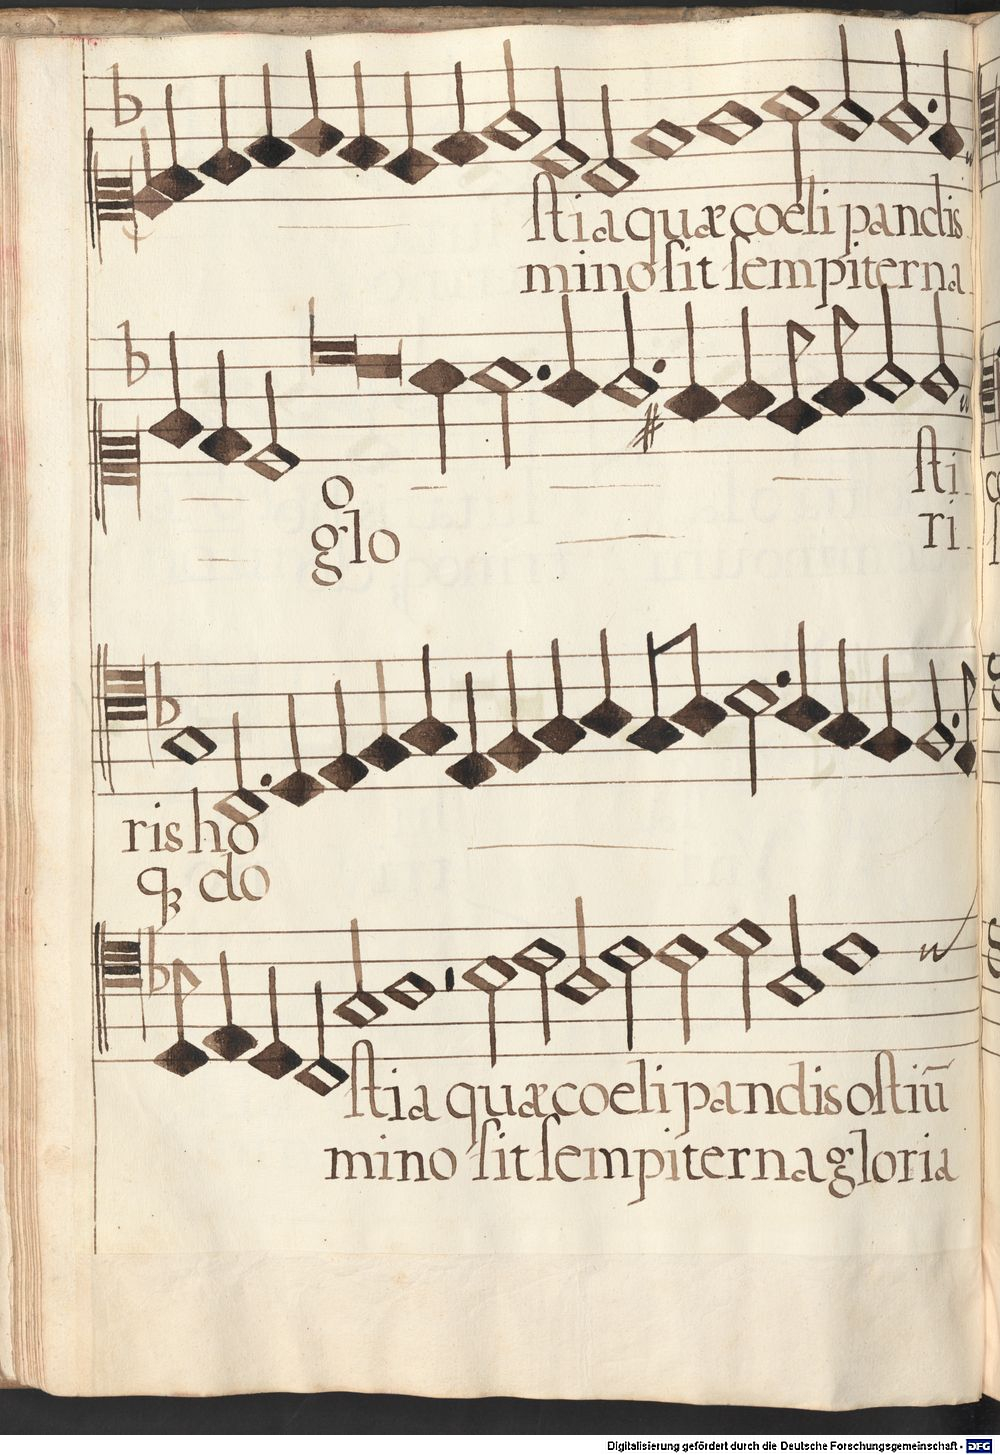 stia quæ coeli pandis
mino sit sempiterna
o sti
glo ri
ris ho
qꝫ do
stia quæ coeli pandis ostiū
mino sit sempiterna gloria
Digitalisierung gefördert durch die Deutsche Forschungsgemeinschaft - DFG